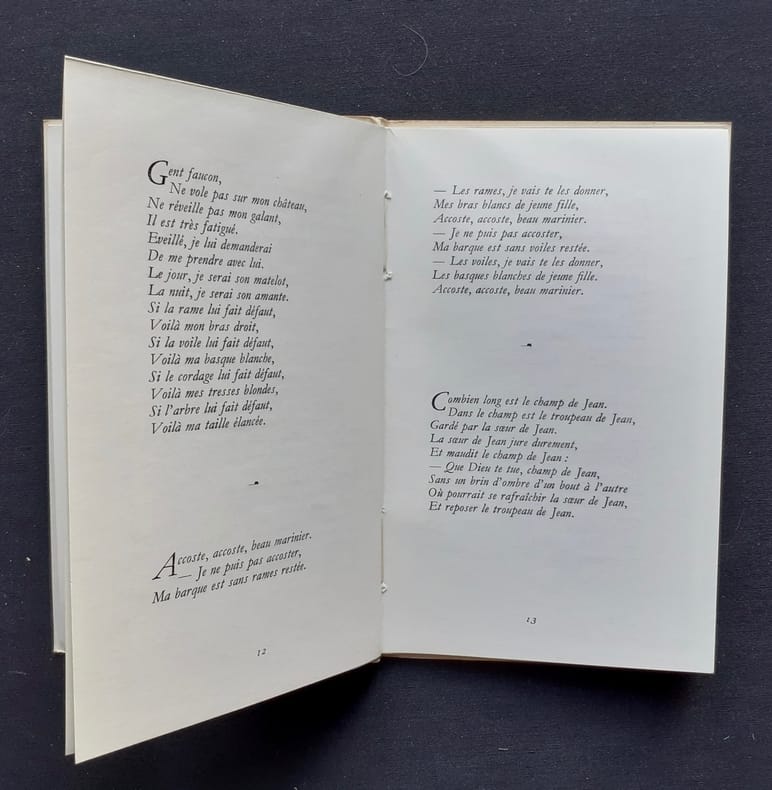 Gent faucon,
Ne vole pas sur mon château,
Ne réveille pas mon galant,
Il est très fatigué.
Eveillé, je lui demanderai
De me prendre avec lui.
Le jour, je serai son matelot,
La nuit, je serai son amante.
Si la rame lui fait défaut,
Voilà mon bras droit,
Si la voile lui fait défaut,
Voilà ma basque blanche,
Si le cordage lui fait défaut,
Voilà mes tresses blondes,
Si l'arbre lui fait défaut,
Voilà ma taille élancée.
Accoste, accoste, beau marinier.
— Je ne puis pas accoster,
Ma barque est sans rames restée.
12
— Les rames, je vais te les donner,
Mes bras blancs de jeune fille,
Accoste, accoste, beau marinier.
— Je ne puis pas accoster,
Ma barque est sans voiles restée.
— Les voiles, je vais te les donner,
Les basques blanches de jeune fille.
Accoste, accoste, beau marinier.
Combien long est le champ de Jean.
Dans le champ est le troupeau de Jean,
Gardé par la sœur de Jean.
La sœur de Jean jure durement,
Et maudit le champ de Jean :
— Que Dieu te tue, champ de Jean,
Sans un brin d'ombre d'un bout à l'autre
Où pourrait se rafraîchir la sœur de Jean,
Et reposer le troupeau de Jean.
13